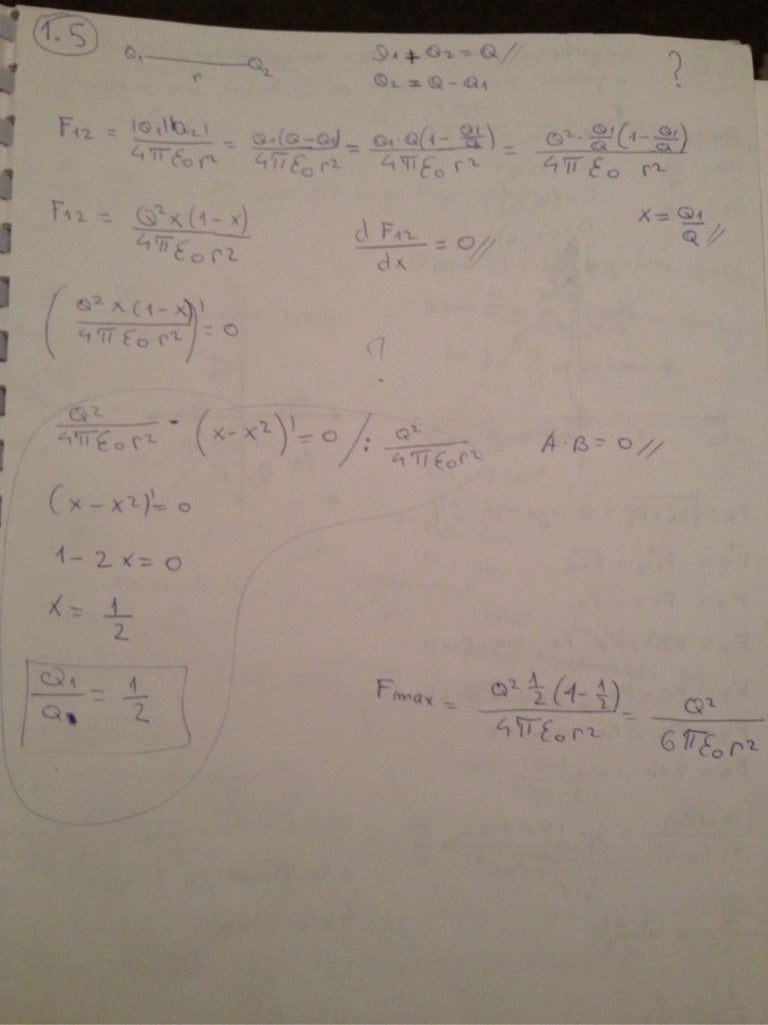 1.5
Q₁ —— Q₂ Q₁ + Q₂ = Q // ?
r Q₂ = Q - Q₁
F₁₂ = |Q₁||Q₂| / 4πε₀r² = Q₁(Q-Q₁) / 4πε₀r² = Q₁·Q(1-Q₁/Q) / 4πε₀r² = Q²·Q₁/Q(1-Q₁/Q) / 4πε₀ r²
F₁₂ = Q²x(1-x) / 4πε₀r² dF₁₂/dx = 0 // x = Q₁/Q //
(Q²x(1-x) / 4πε₀r²)' = 0 ?
Q² / 4πε₀r² · (x-x²)' = 0 /: Q² / 4πε₀r² A·B = 0 //
(x-x²)' = 0
1-2x = 0
x = 1/2
Q₁/Q = 1/2 Fmax = Q² 1/2 (1-1/2) / 4πε₀r² = Q² / 6πε₀r²